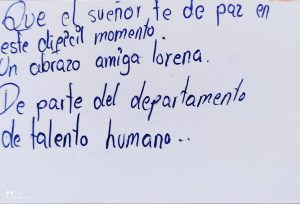 Que el sueñor te de paz en
este dificil momento.
Un abrazo amiga lorena.
De parte del departamento
de talento humano..